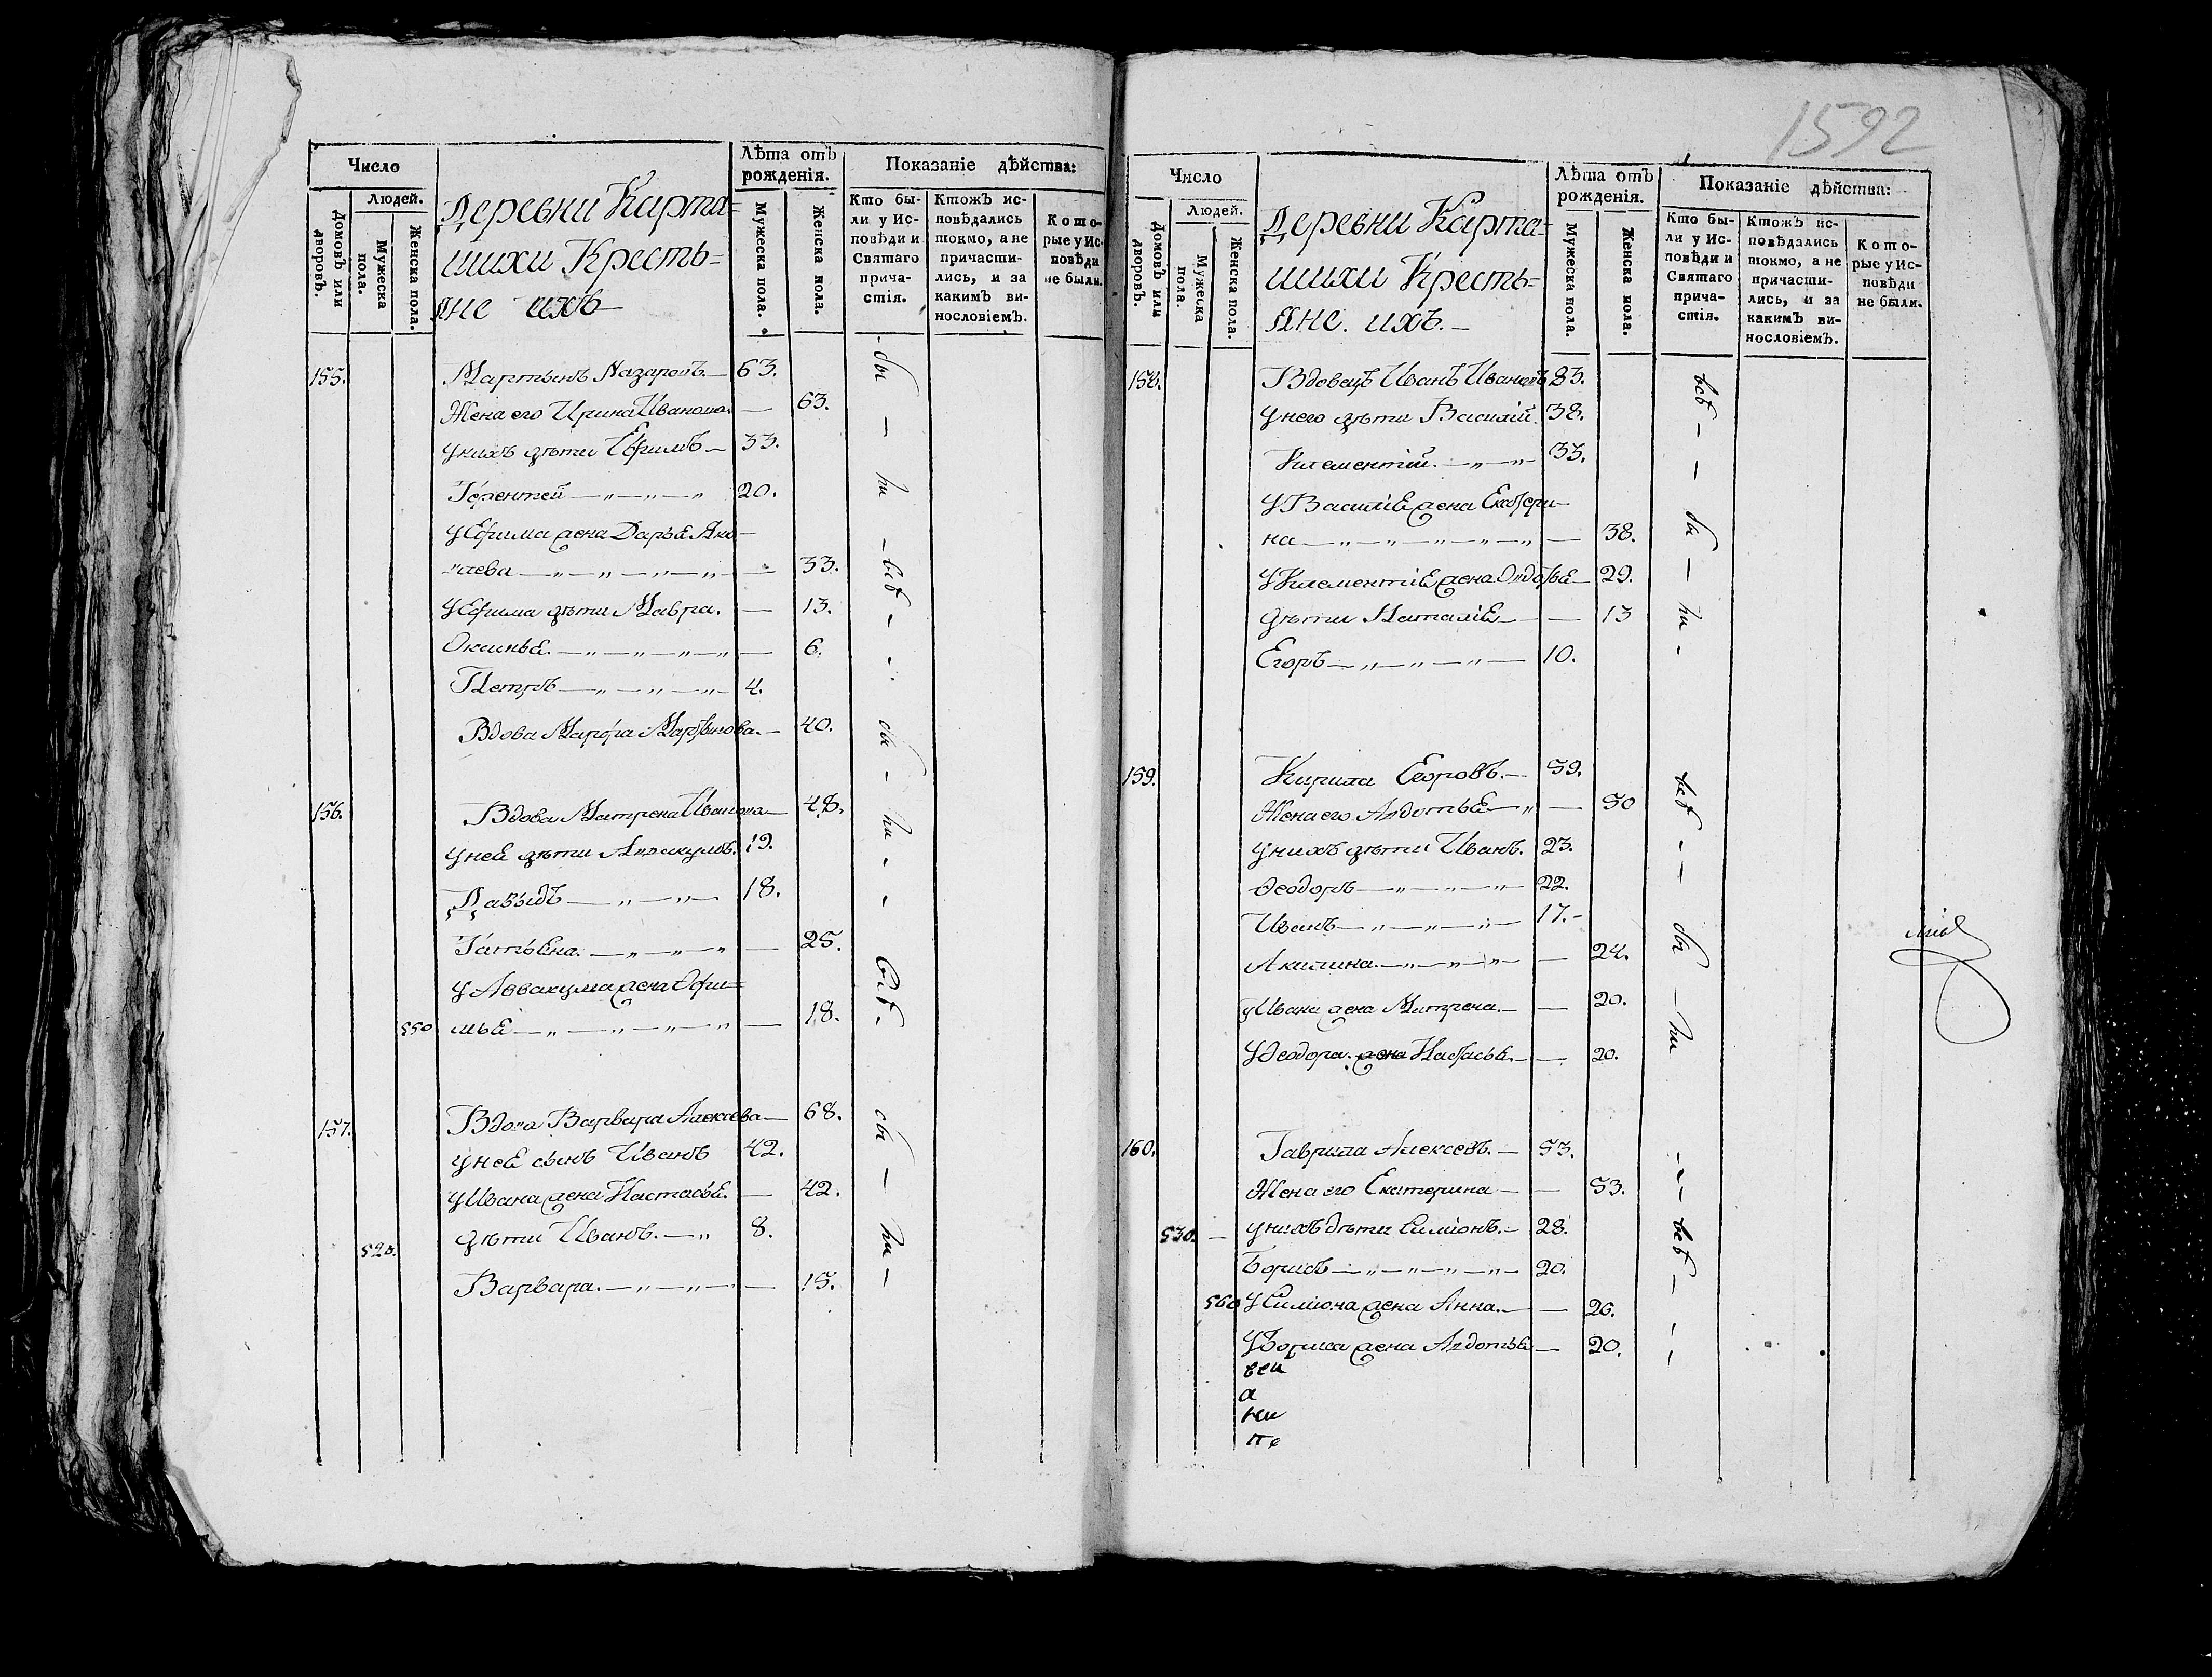 1592
Число
Людей.
Домовъ или дворовъ.
Мужеска пола.
Женска пола.
Деревни Карта=
шихи Кресть=
яне ихъ
Лѣта отъ рожденія.
Мужеска пола.
Женска пола.
Показаніе дѣйства:
Кто бы-
ли у Ис-
повѣди и
Святаго
прича-
стія.
Ктожъ ис-
повѣдались
токмо, а не
причасти-
лись, и за
какимъ ви-
нословіемъ.
Кото-
рые у Ис-
повѣди
не были.
155. Мартынъ Назаровъ — 63.
Жена его Ирина Иванова. — 63.
У нихъ дѣти Ефимъ — 33.
Терентей — „ — „ — „ 20.
У Ефима жена Дарья Яко—
влева — „ — „ — „ — „ — 33.
У Ефима дѣти Мавра. — 13.
Оксинья. — „ — „ — „ — „ — 6.
Петръ — „ — „ — „ 4.
Вдова Марфа Мартынова. — 40.
156. Вдова Матрена Иванова — 48.
У нея дѣти Аввакумъ. 19.
Давыдъ — „ — „ — 18.
Татьяна. — „ — „ — „ — 25.
У Аввакума жена Офи=
550 мья — „ — „ — „ — „ — 18.
157. Вдова Варвара Алексева — 68.
У нея сынъ Иванъ 42.
У Ивана жена Настасья. — 42.
520. дѣти Иванъ. — „ 8.
Варвара. — „ — „ — — 15.
бы — ли — всѣ — бы — ли — всѣ — бы — ли —
Число
Людей.
Домовъ или дворовъ.
Мужеска пола.
Женска пола.
Деревни Карта=
шихи Кресть=
яне. ихъ. —
Лѣта отъ рожденія.
Мужеска пола.
Женска пола.
Показаніе дѣйства:
Кто бы-
ли у Ис-
повѣди и
Святаго
прича-
стія.
Ктожъ ис-
повѣдались
токмо, а не
причасти-
лись, и за
какимъ ви-
нословіемъ.
Кото-
рые у Ис-
повѣди
не были.
158. Вдовецъ Иванъ Ивановъ 83.
У него дѣти Василій. 38.
Климентій. — „ — „ — 33.
У Василія жена Екатери—
на — „ — „ — „ — „ — „ — 38.
У Климентія жена Авдотья — 29.
дѣти Наталія — — 13
Егоръ — „ — „ — „ — 10.
159. Кирила Егоровъ. — 59.
Жена его Авдотья — „ — 50
У нихъ дѣти Иванъ. 23.
Ѳеодоръ — „ — „ — „ — 22.
Иванъ — „ — „ — „ — 17. -
Акилина. — „ — „ — „ — — 24.
У Ивана жена Матрена. — — 20.
У Ѳеодора. жена Настасья. — — 20.
160. Гаврила Алексевъ. — 53.
Жена его Екатерина — — 53.
530. — У нихъ дѣти Симіонъ. — 28.
Борисъ — „ — „ — „ — „ — 20.
560 У Симіона жена Анна. — — 26.
У Бориса жена Авдотья — — 20.
всѣ — — бы — ли — всѣ — — бы — ли — — всѣ — —